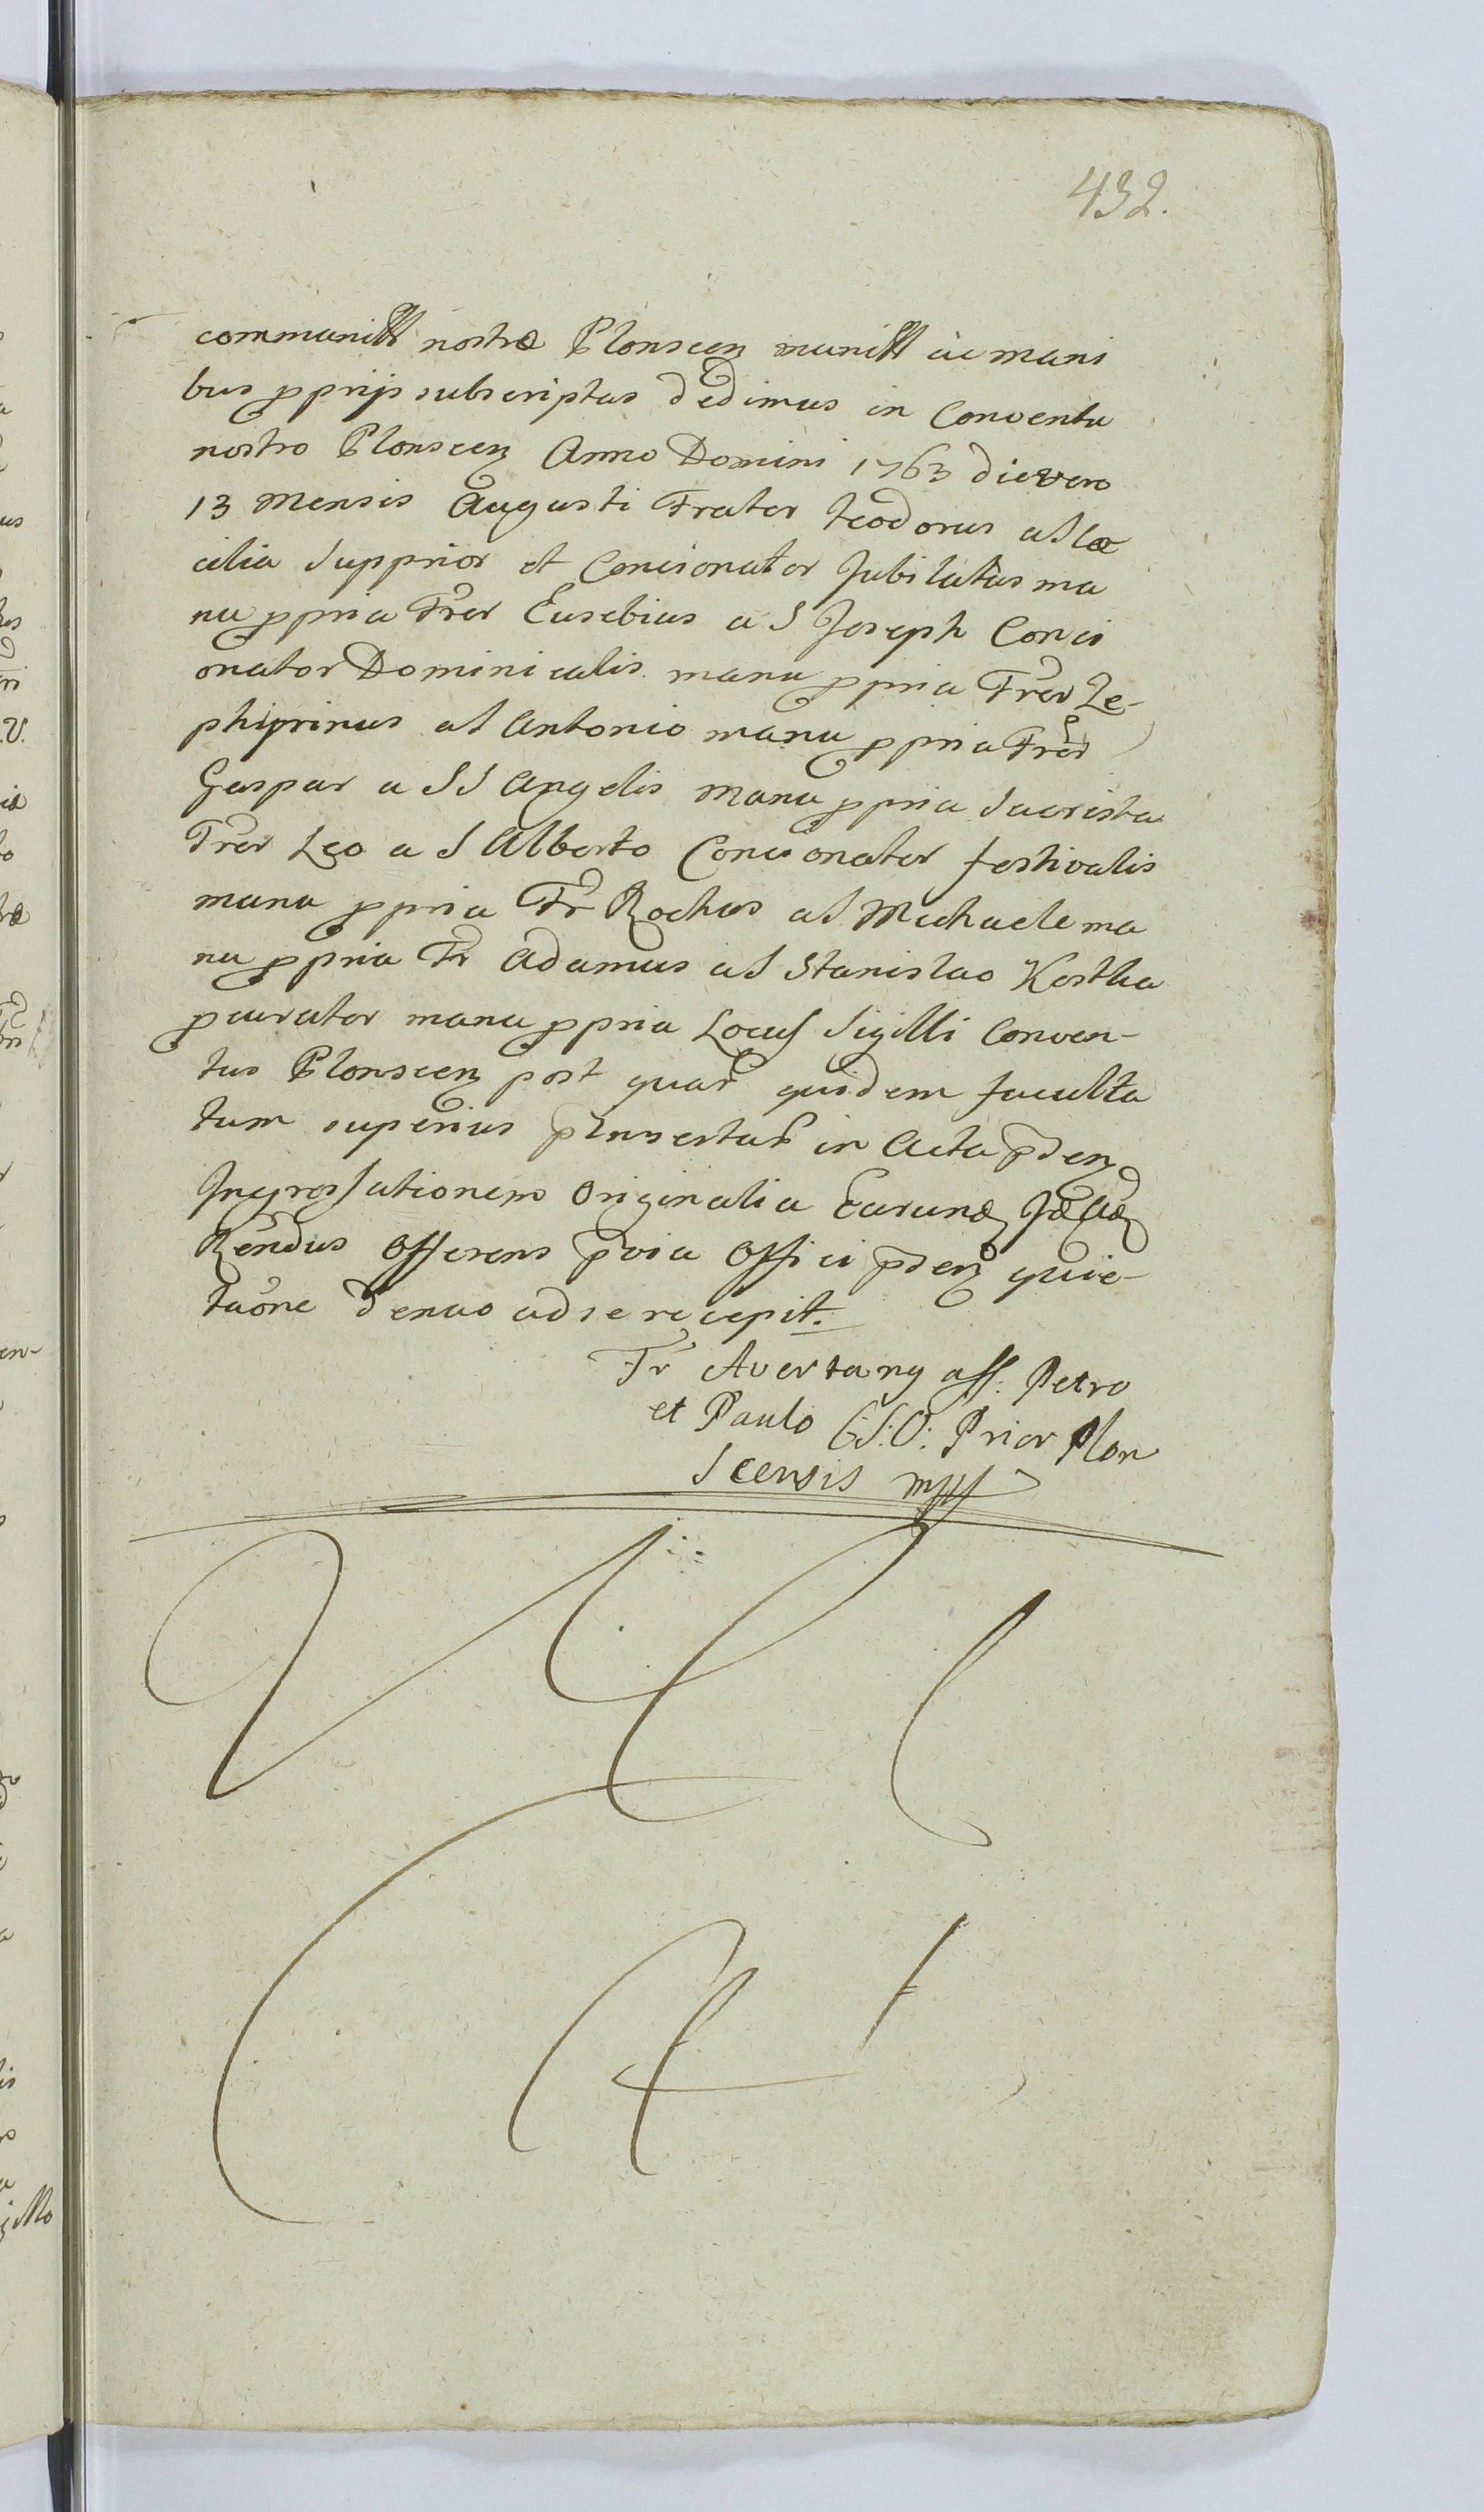 432.
communitt nostræ Plonscen munitt ac mani
bus pprijs subscriptas dedimus in Conventu
nostro Plonscen Anno Domini 1763 die vero
13 Mensis Augusti Frater Teodorus a S Cæ
cilia Supprior et Concionator Jubilatus ma
nu ppria Frer Eusebius a S Joseph Conci
onator Dominicalis manu ppria Frer Ze-
phiprinus a S Antonio manu ppria Frer
Gaspar a SS Angelis manu ppria Sacrista
Frer Leo a S Alberto Concionator festivalis
manu ppria Fr Rochus a S Michaele ma
nu ppria Fr Adamus a S Stanislao Kostka
pcurator manu ppria Locus Sigilli Conven-
tus Plonscen post quar quidem faculta
tum superius pinsertar in Acta psen
Ingrossationem Originalia Earund
Rendus Offerens pvia Offici psen quie-
taone denuo ad se recepit.
Fr Avertang a SS: Petro
et Paulo C:S:O: Prior Plon
scensis mpp